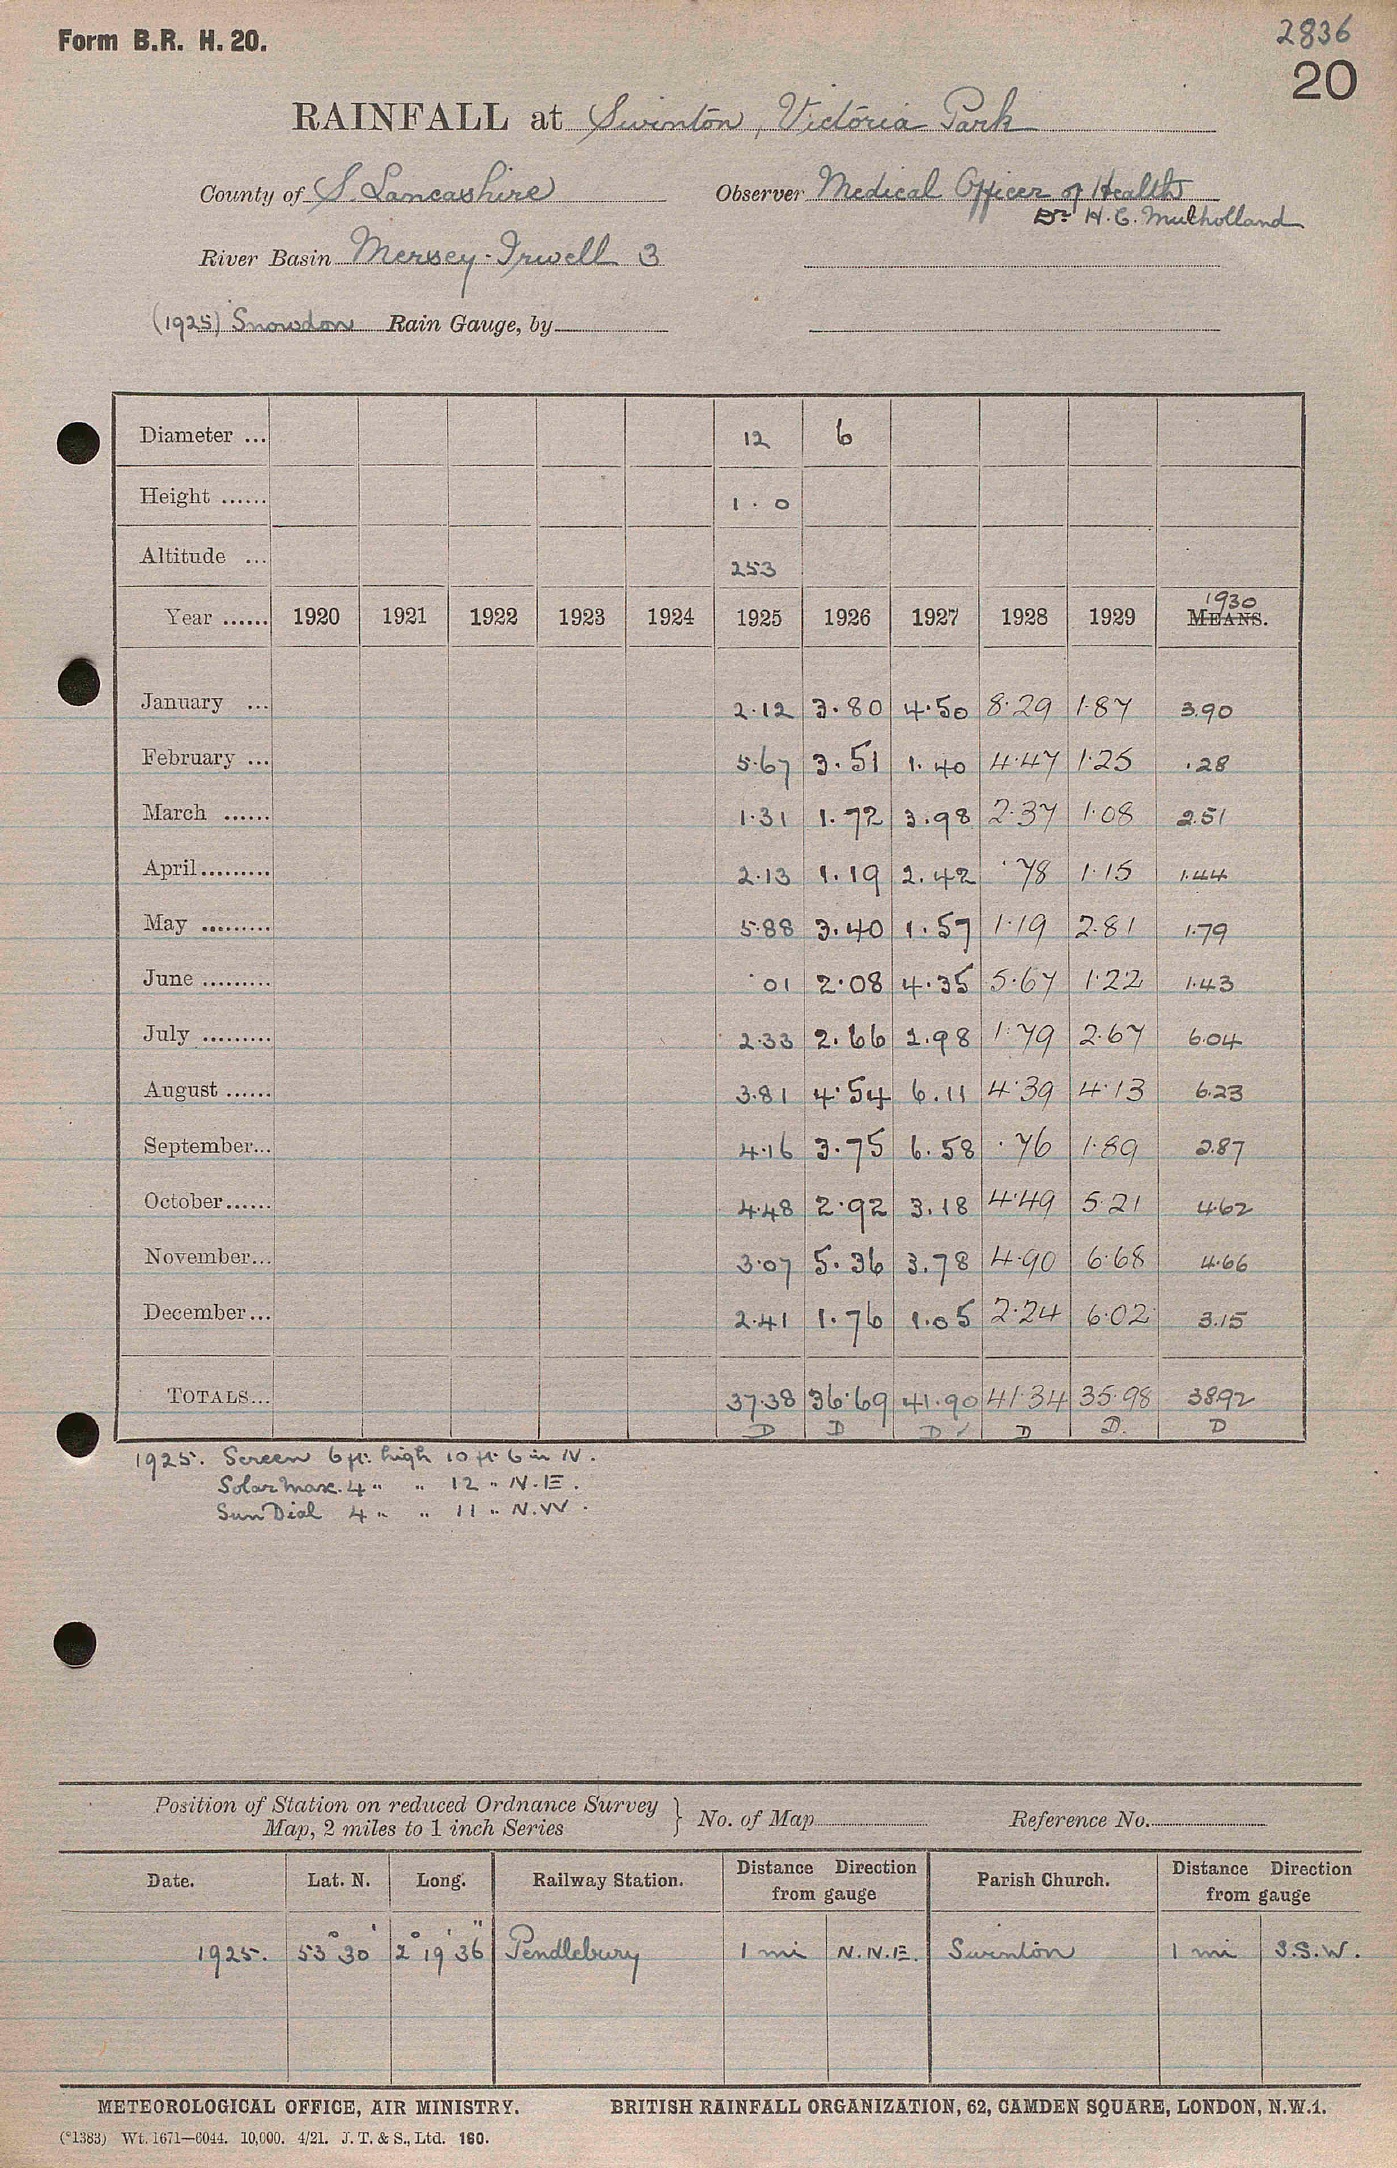 Form B.R. H. 20.
2836
20
RAINFALL at Swinton, Victoria Park
County of S. Lancashire Observer Medical Officer of Health
Dr. H. C. Mulholland
River Basin Mersey-Irwell 3
(1925) Snowdon Rain Gauge, by
Diameter ... 12 6
Height ...... 1.0
Altitude ... 253
Year ...... 1920 1921 1922 1923 1924 1925 1926 1927 1928 1929 1930 MEANS.
January ... 2.12 3.80 4.50 8.29 1.87 3.90
February ... 5.67 3.51 1.40 4.47 1.25 .28
March ...... 1.31 1.72 3.98 2.37 1.08 2.51
April ......... 2.13 1.19 2.42 .78 1.15 1.44
May ......... 5.88 3.40 1.57 1.19 2.81 1.79
June ......... .01 2.08 4.35 5.67 1.22 1.43
July ......... 2.33 2.66 2.98 1.79 2.67 6.04
August ...... 3.81 4.54 6.11 4.39 4.13 6.23
September... 4.16 3.75 6.58 .76 1.89 2.87
October...... 4.48 2.92 3.18 4.49 5.21 4.62
November... 3.07 5.36 3.78 4.90 6.68 4.66
December... 2.41 1.76 1.05 2.24 6.02 3.15
TOTALS... 37.38 36.69 41.90 41.34 35.98 38.92
D D D ✓ D D. D
1925. Screen 6 ft. high 10 ft. 6 in N.
Solar Max. 4 " " 12 " N.E.
Sun Dial 4 " " 11 " N.W.
Position of Station on reduced Ordnance Survey
Map, 2 miles to 1 inch Series } No. of Map Reference No.
Date. Lat. N. Long. Railway Station. Distance Direction from gauge Parish Church. Distance Direction from gauge
1925. 53° 30' 2° 19' 36" Pendlebury 1 mi N.N.E. Swinton 1 mi S.S.W.
METEOROLOGICAL OFFICE, AIR MINISTRY. BRITISH RAINFALL ORGANIZATION, 62, CAMDEN SQUARE, LONDON, N.W.1.
(*1383) Wt. 1671—6044. 10,000. 4/21. J. T. & S., Ltd. 160.